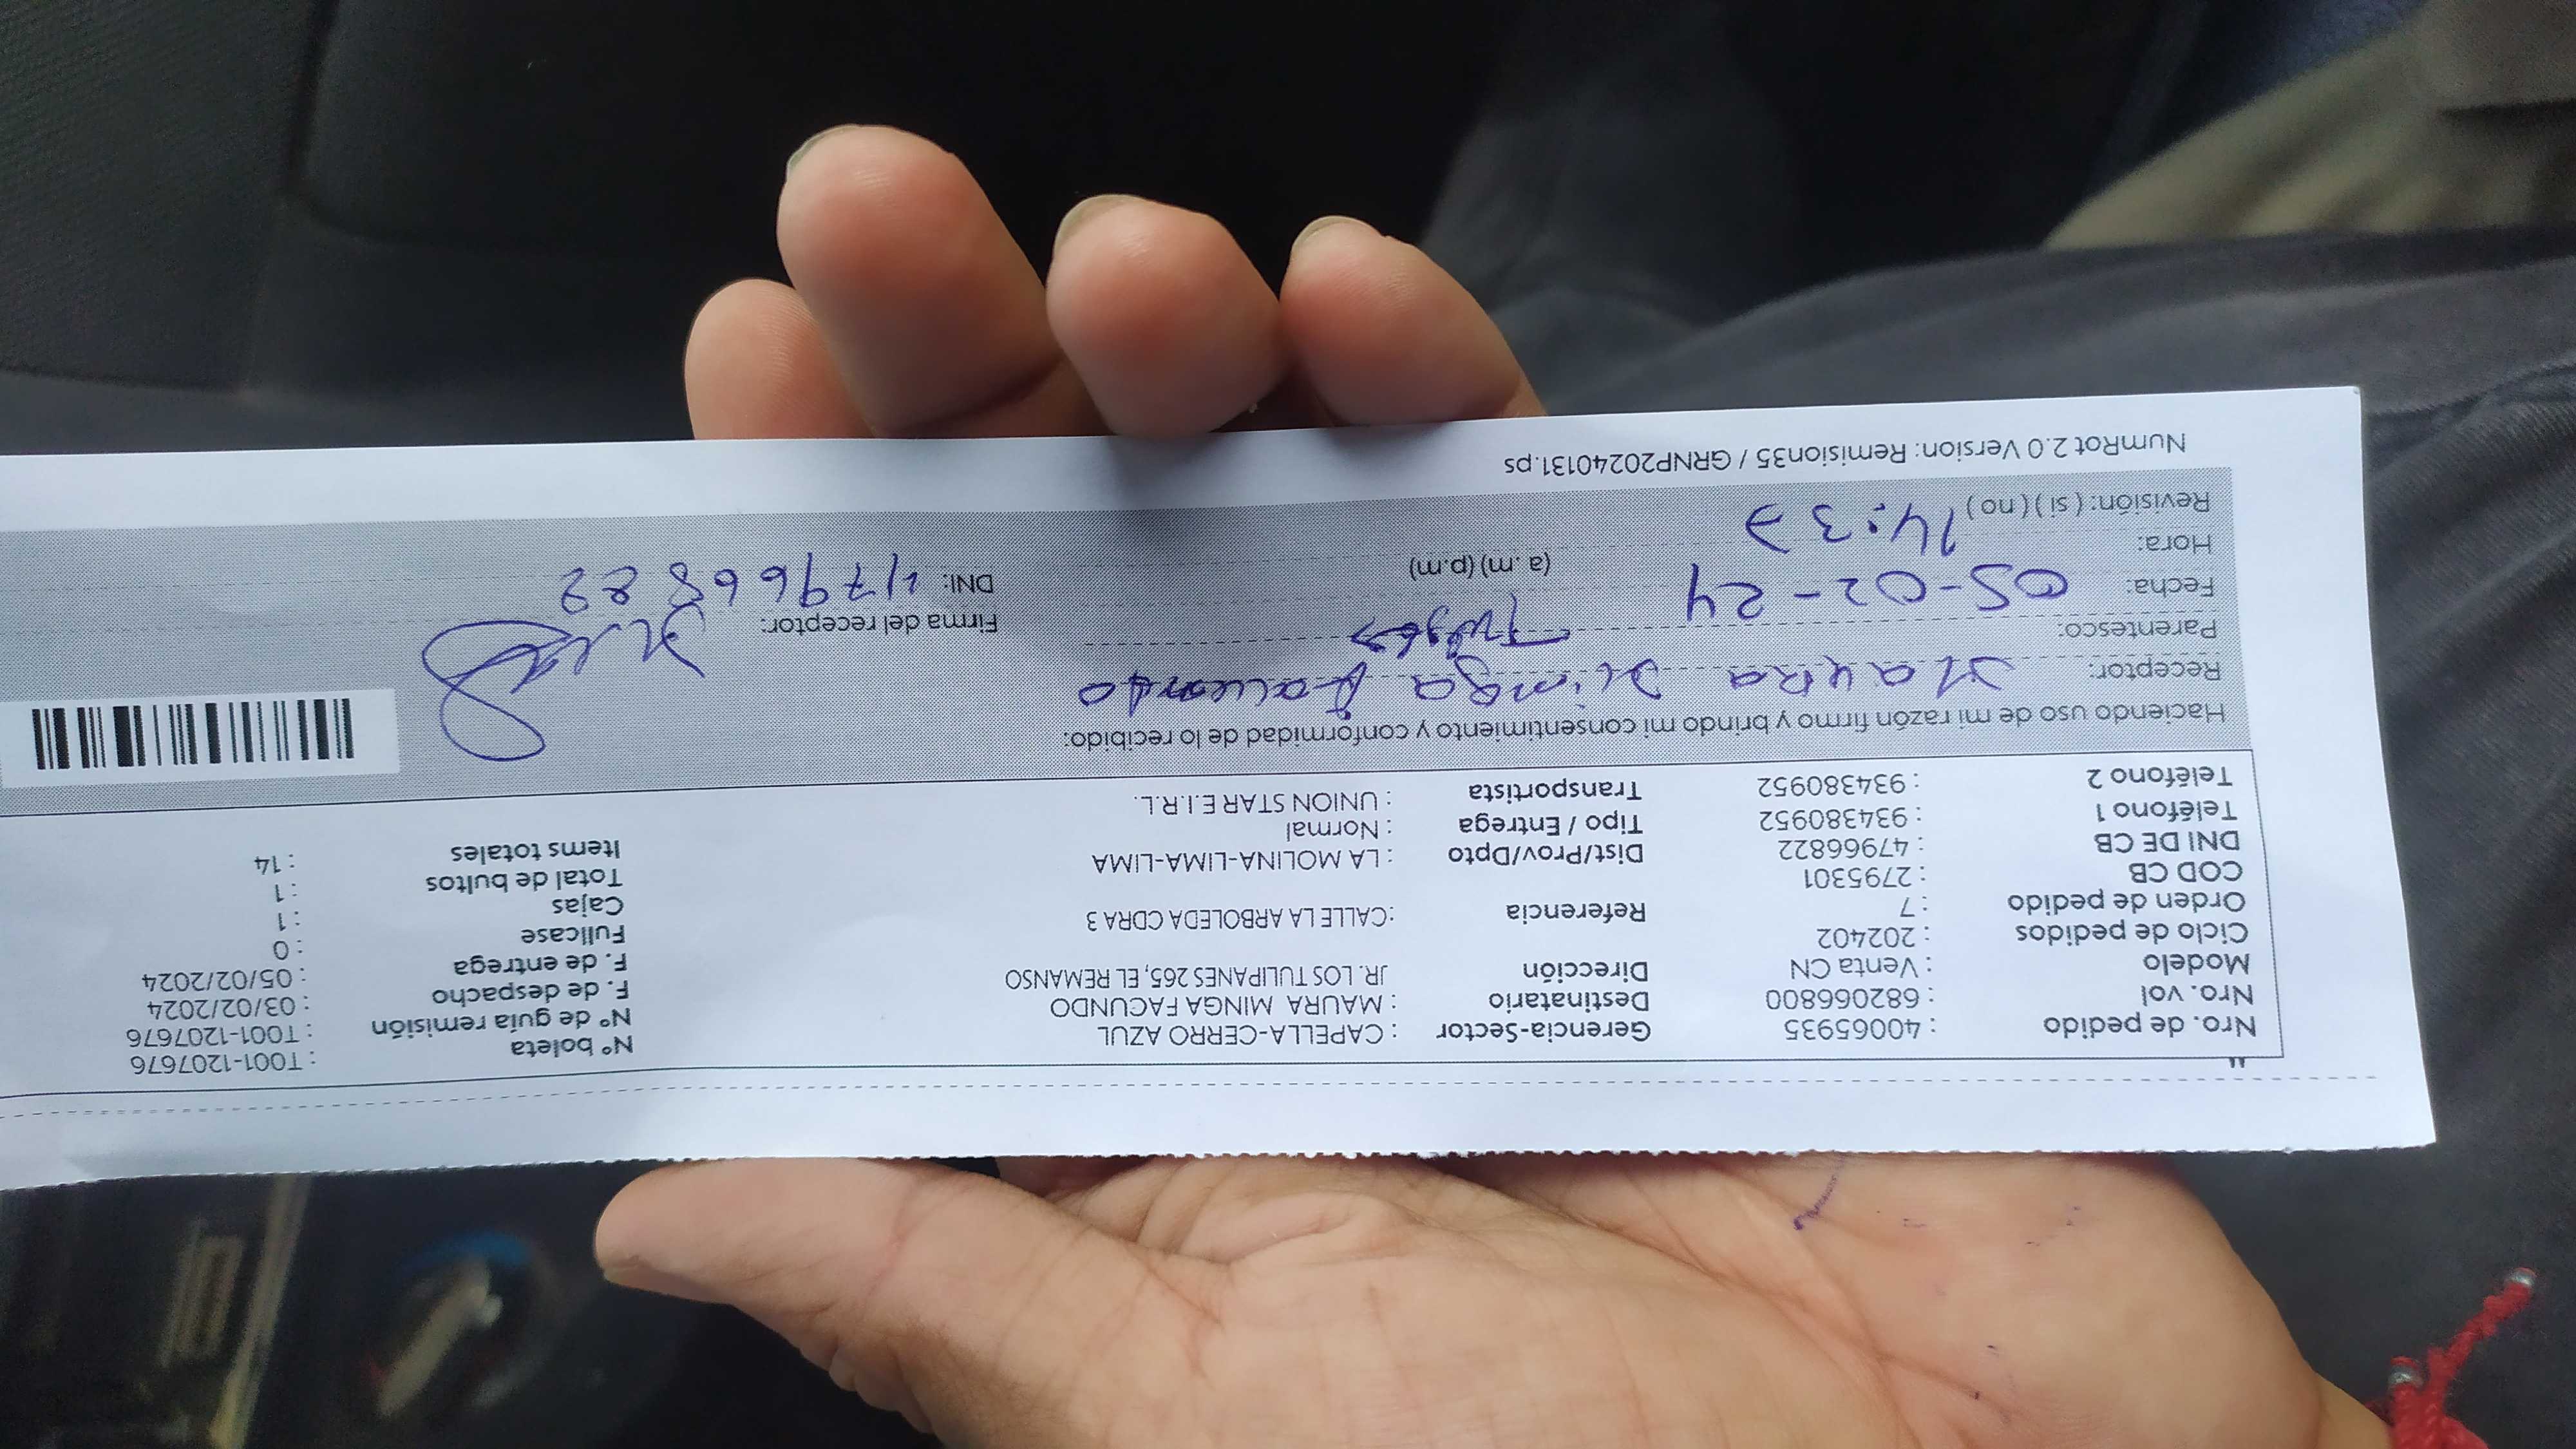 Nro. de pedido : 40065935 Gerencia-Sector : CAPELLA-CERRO AZUL N° boleta : T001-1207676
Nro. vol : 682066800 Destinatario : MAURA MINGA FACUNDO N° de guía remisión : T001-1207676
Modelo : Venta CN Dirección JR. LOS TULIPANES 265, EL REMANSO F. de despacho : 03/02/2024
Ciclo de pedidos : 202402 F. de entrega : 05/02/2024
Orden de pedido : 7 Referencia : CALLE LA ARBOLEDA CDRA 3 Fullcase : 0
COD CB : 2795301 Cajas : 1
DNI DE CB : 47966822 Dist/Prov/Dpto : LA MOLINA-LIMA-LIMA Total de bultos : 1
Teléfono 1 : 934380952 Tipo / Entrega : Normal Items totales : 14
Teléfono 2 : 934380952 Transportista : UNION STAR E.I.R.L.
Haciendo uso de mi razón firmo y brindo mi consentimiento y conformidad de lo recibido:
Receptor: Maura Minga Facundo
Parentesco: Firma del receptor:
Fecha: 05-02-24 DNI:
Hora: 14:37 (a. m) (p.m)
Revisión: ( si ) ( no )
NumRot 2.0 Version: Remision35 / GRNP20240131.ps